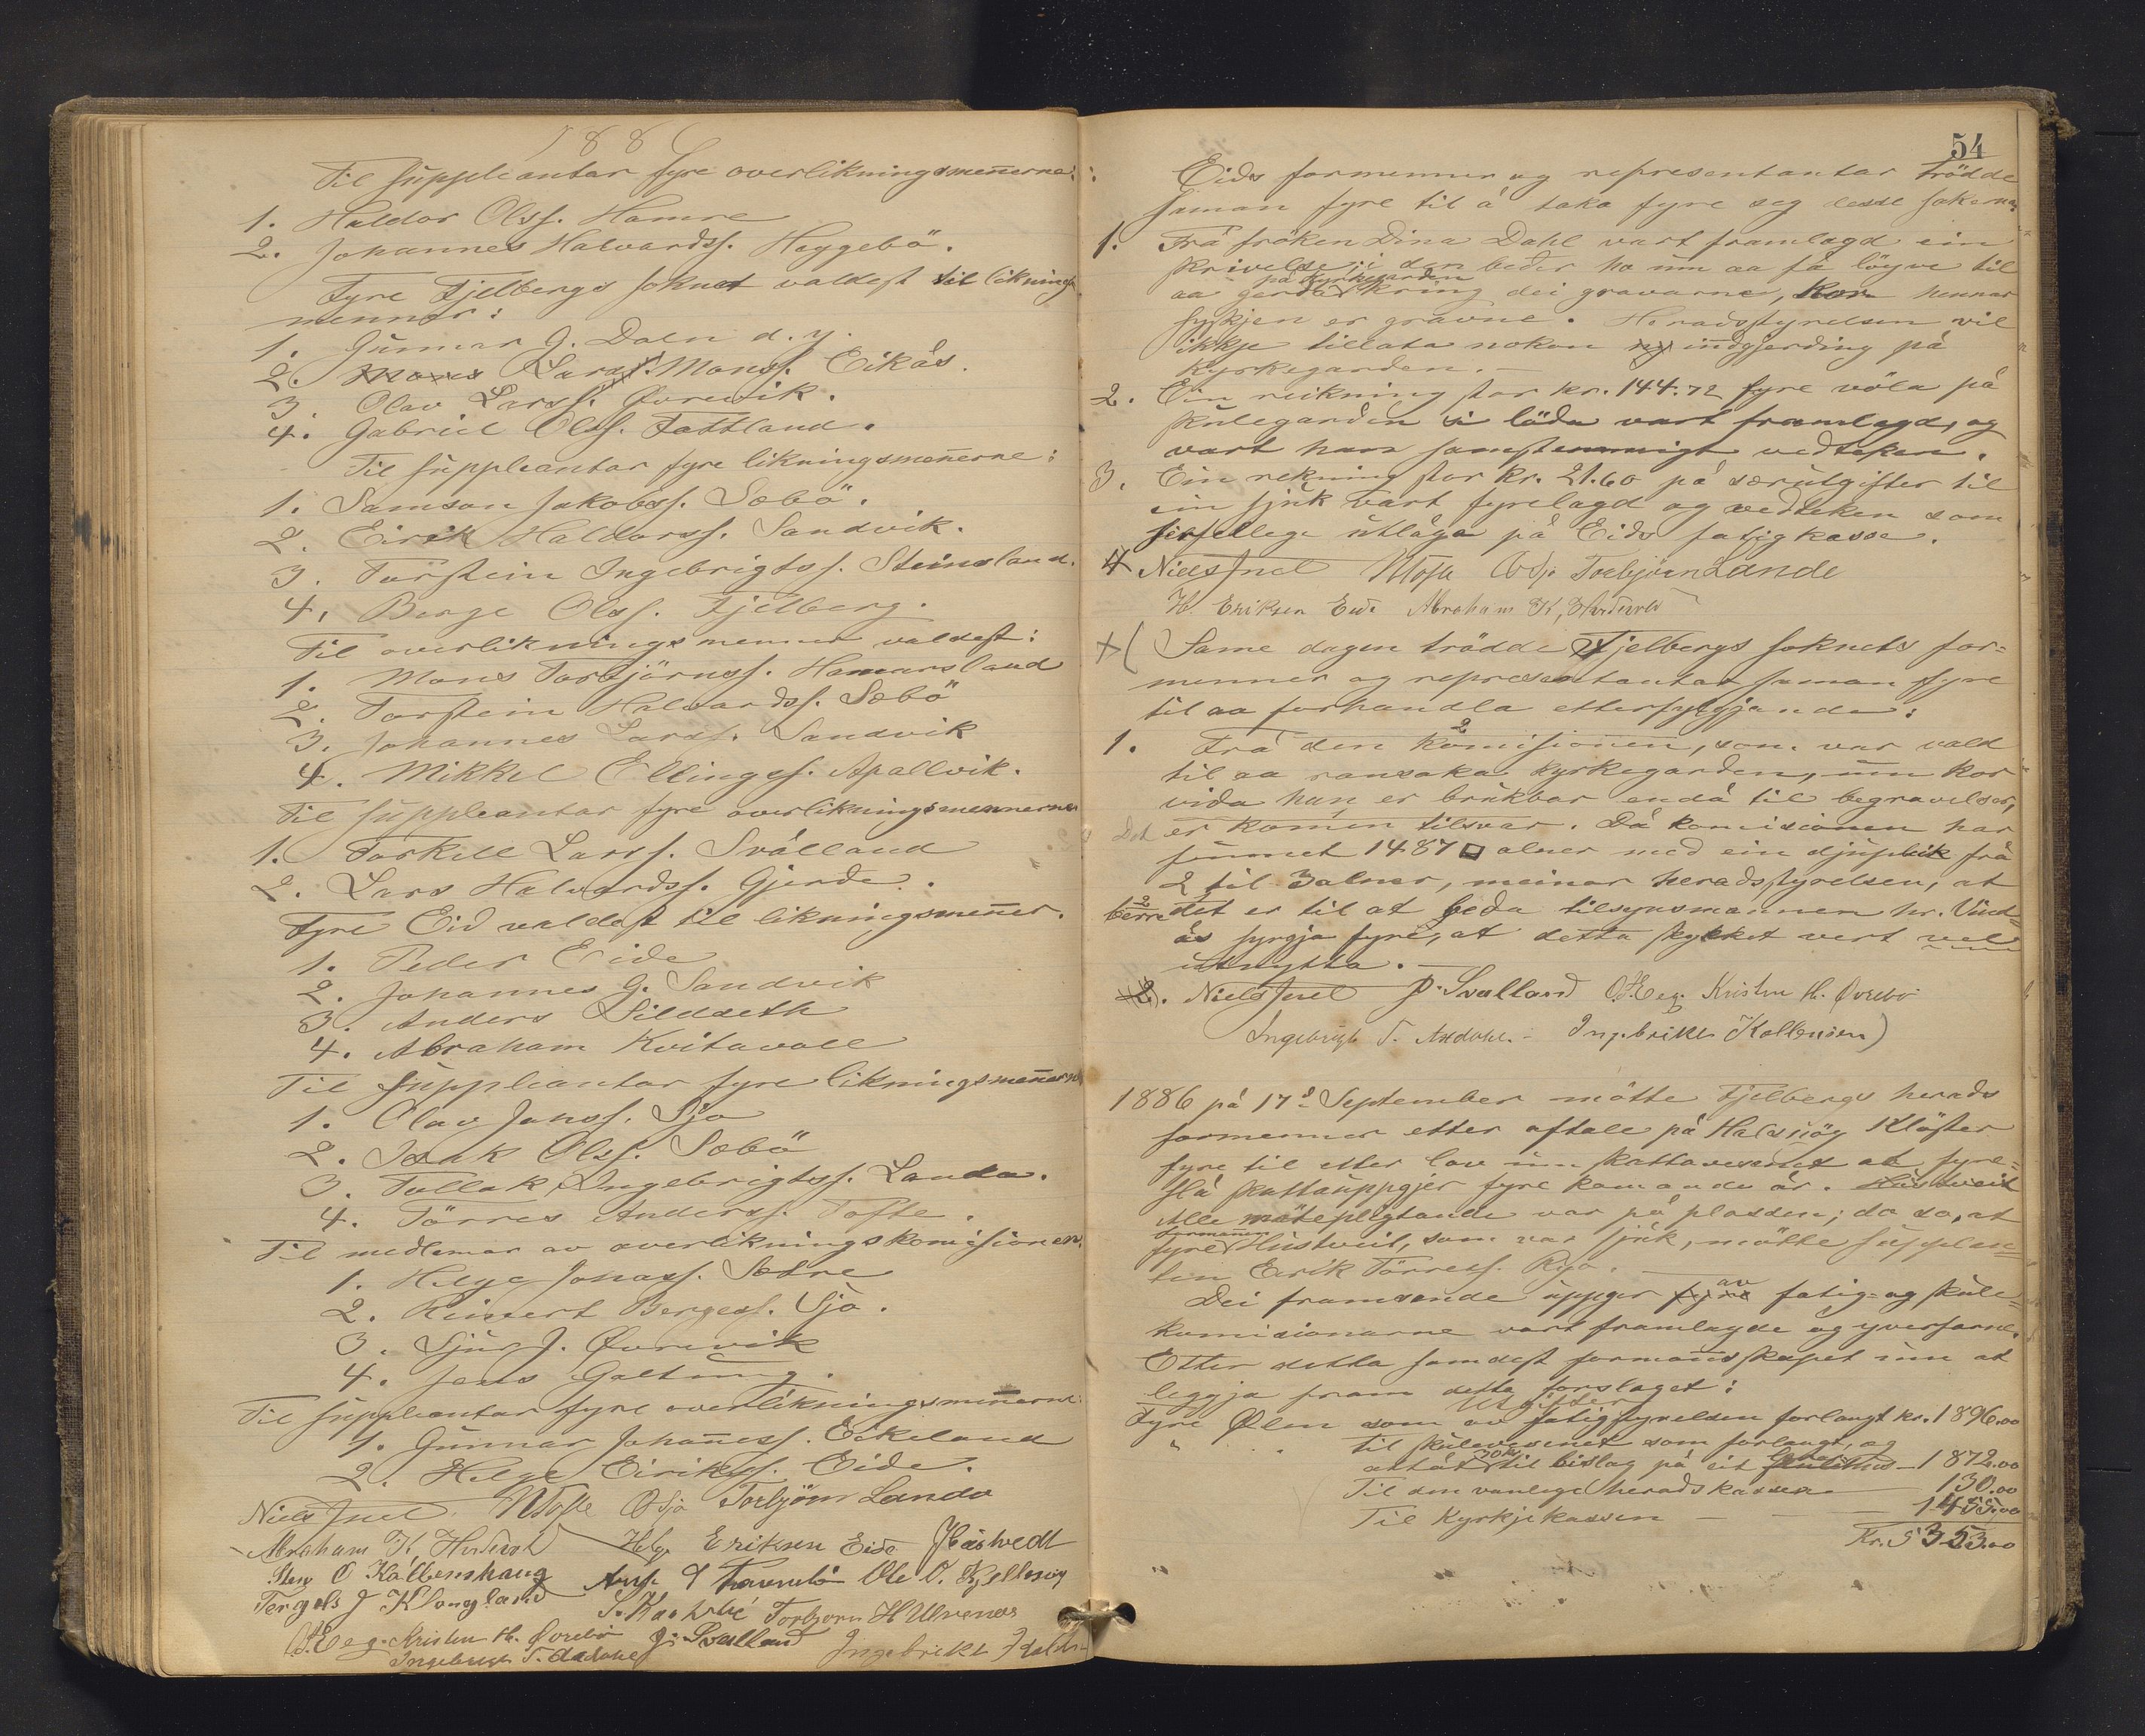 1886
Til suppleantar fyre overlikningsmennerne:
1. Haldor Olss. Hamre
2. Johannes Halvardss. Heggebö.
Fyre Fjelbergs soknet valdest til liknings
menner:
1. Gunnar G. Daln d. y.
2. Mons Larss. Monss. Eikås.
3. Olav Larss. Øvrevik.
4. Gabriel Olss. Tattland.
Til suppleantar fyre likningsmennerne:
1. Samson Jakobss. Sæbö.
2. Eirik Haldorss. Sandvik.
3. Torstein Ingebrigtss. Steinsland.
4. Berge Olss. Fjelberg.
Til overlikningsmenner valdest:
1. Mons Torbjörnss. Hamarsland
2. Torstein Halvardss. Sæbö
3. Johannes Larss. Sandvik
4. Mikkel Ellingss. Apallvik.
Til suppleantar fyre overlikningsmennerne
1. Torkell Larss. Svålland
2. Lars Halvardss. Gjerde.
Fyre Eid valdest til likningsmenner.
1. Peder Eide
2. Johannes G. Sandvik
3. Anders Sildaeth
4. Abraham Kvitavoll
Til suppleantar fyre likningsmennerne
1. Olav Janss. Sjo
2. Isak Olss. Sæbö
3. Tollak Ingebrigtss. Landa.
4. Törres Anderss. Tofte.
Til medlemar av overlikningskomisionen.
1. Helge Jonass. Sætre
2. Reinert Bergess. Sjo.
3. Sjur J. Øvrevik
4. Jens Galtung.
Til suppleantar fyre overlikningsmennerne
1. Gunnar Johaness. Eikeland
2. Helge Eirikss. Eide.
Niels Juel. Tofte O Sjo Torbjörn Landa
Abraham K. Helge Eriksen Eide J Hustvedt
O Kallbenshaug Ole O. Kjellesvig
J Klongland Torbjorn H Ulvenes
O. H. Eeg. Kristen H. Øvrebö J. Svalland Ingebrikt
Ingebrigt T.
54
Eids formenner og representantar trödde
saman fyre til å taka fyre seg desse sakerna:
1. Frå fröken Dina Dahl vart framlagd ein
skrivelse; i den beder ho um aa få löyve til
på kyrkjegarden
aa gerda kring dei gravarne, kor hennar
sykjen er gravne. Heradsstyrelsen vil
ikkje tillata nokon ny indgjerding på
kyrkegarden. —
2. Ein reikning stor kr. 144.72 fyre völa på
skulegarden i löda vart framlagd, og
vart han samstemmigt vedteken.
3. Ein rekning stor kr. 21.60 på særutgifter til
ein sjuk vart fyrelagd og vedteken som
serfellege utlåga på Eids fatigkasse.
4 Niels Juel Tofte O Sjo Torbjörn Lande
H. Eriksen Eide Abraham K,
+( Same dagen trödde Fjelbergs soknets for=
menner og representantar saman fyre
til aa forhandla etterfylgjande:
1. Frå den komisionen, som var vald
til aa ransaka kyrkegarden, um kor
vida han er brukbar endå til begravelser,
Det er komen tilsvar. Då komisionen har
funnet 1487 □ alner med ein djupleik frå
2 til 3 alner, meinar heradsstyrelsen, at
berre det er til at beda tilsynsmannen hr. Vind=
ås syrgja fyre, at detta stykket vert vel
utnytta. —
(2). Niels Juel J. Svalland O. H. Eeg. Kristen H. Øvrebö
Ingebrigt T. Ingebrikt Kallensen)
1886 på 17d September mötte Fjelbergs herads
formenner etter aftale på Halsnöy Klöster
fyre til etter lov um skattavesenet at fyre=
slå skattauppgjer fyre komande år. Hustveit
Alle mötepligtande var på plassen; da so, at
formannen
fyre Hustveit, som var sjuk, mötte supplen=
ten Eirik Törress. Ryo.
Dei framsende uppger fyre av fatig= og skule=
komisionarne vart framlagde og yverfarne.
Etter detta samdest formannskapet um at
leggja fram dette forslaget:
Utgifter
Fyre Ølen som av fatigstyrelsen forlangt kr. 1896.00
" til skulevesenet som forlangt, og
attåt 30 kr til bislag på eit skulehus – 1872.00
Til den vanlege heradskassen — 130.00
Til Kyrkjekassen — — 1455.00
Kr. 5353.00